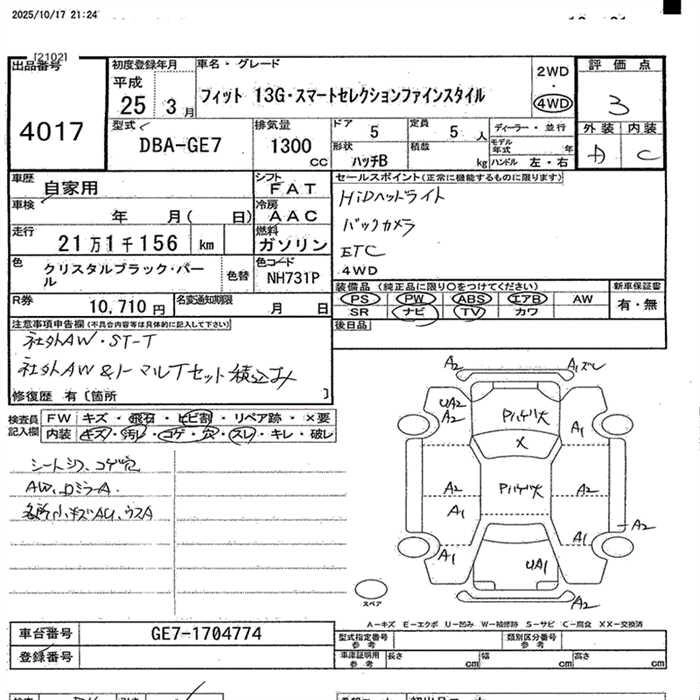 2025/10/17 21:24
[2102]
出品番号
4017
初度登録年月
平成
25 3月
車名・グレード
フィット 13G・スマートセレクションファインスタイル
2WD
・
4WD
評価点
3
外装 内装
D C
型式
DBA-GE7
排気量
1300
CC
ドア
5
定員
5人
形状
ハッチB
積載
kg
ディーラー・並行
モデル年式 年
ハンドル 左・右
車歴
自家用
シフト
FAT
車検
年 月( 日)
冷房
AAC
走行
21万1千156 km
燃料
ガソリン
色
クリスタルブラック・パール
色替
色コード
NH731P
R券
10,710円
名変通知期限
月 日
セールスポイント(正常に機能するものに限ります)
HiDヘッドライト
バックカメラ
ETC
4WD
装備品 (純正品に限り○をつけてください)
新車保証書
PS PW ABS エアB AW
有・無
SR ナビ TV カワ
後日品
注意事項申告欄(不具合内容等は具体的に記入して下さい)
社外AW・ST-T
社外AW & ノーマルTセット積込み
修復歴 有〔箇所 〕
検査員
記入欄
FW キズ・飛石・ヒビ割・リペア跡・×要
内装 キズ・汚レ・コゲ・穴・スレ・キレ・破レ
シートシワ、コゲ穴
AW、ロミラーA.
各所小キズAU、ウスA
A2
A1ズレ
UA2
A2
Pハゲ大
A1
X
A2
Pハゲ大
A2
A1
A2
A1
A1
UA1
A2
スペア
A-キズ E-エクボ U-凹み W-補修跡 S-サビ C-腐食 XX-交換済
車台番号
GE7-1704774
登録番号
型式指定番号
参考
類別区分番号
参考
車庫証明用
参考
長さ cm 幅 cm 高さ cm